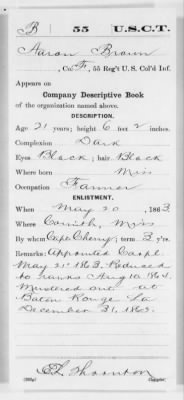 B 55 U.S.C.T.
Aaron Brown
, Co. F, 55 Reg't U. S. Col'd Inf.
Appears on
Company Descriptive Book
of the organization named above.
DESCRIPTION.
Age 21 years; height 6 feet 2 inches.
Complexion Dark
Eyes Black; hair Black
Where born Miss
Occupation Farmer
ENLISTMENT.
When May 20, 1863
Where Corinth, Miss
By whom Capt Cherry; term 3 y'rs.
Remarks: Appointed Corpl.
May 21st 1863. Reduced
to ranks Aug 10, 1864.
Mustered out at
Baton Rouge La
December 31, 1865.
Thornton
Copyist.